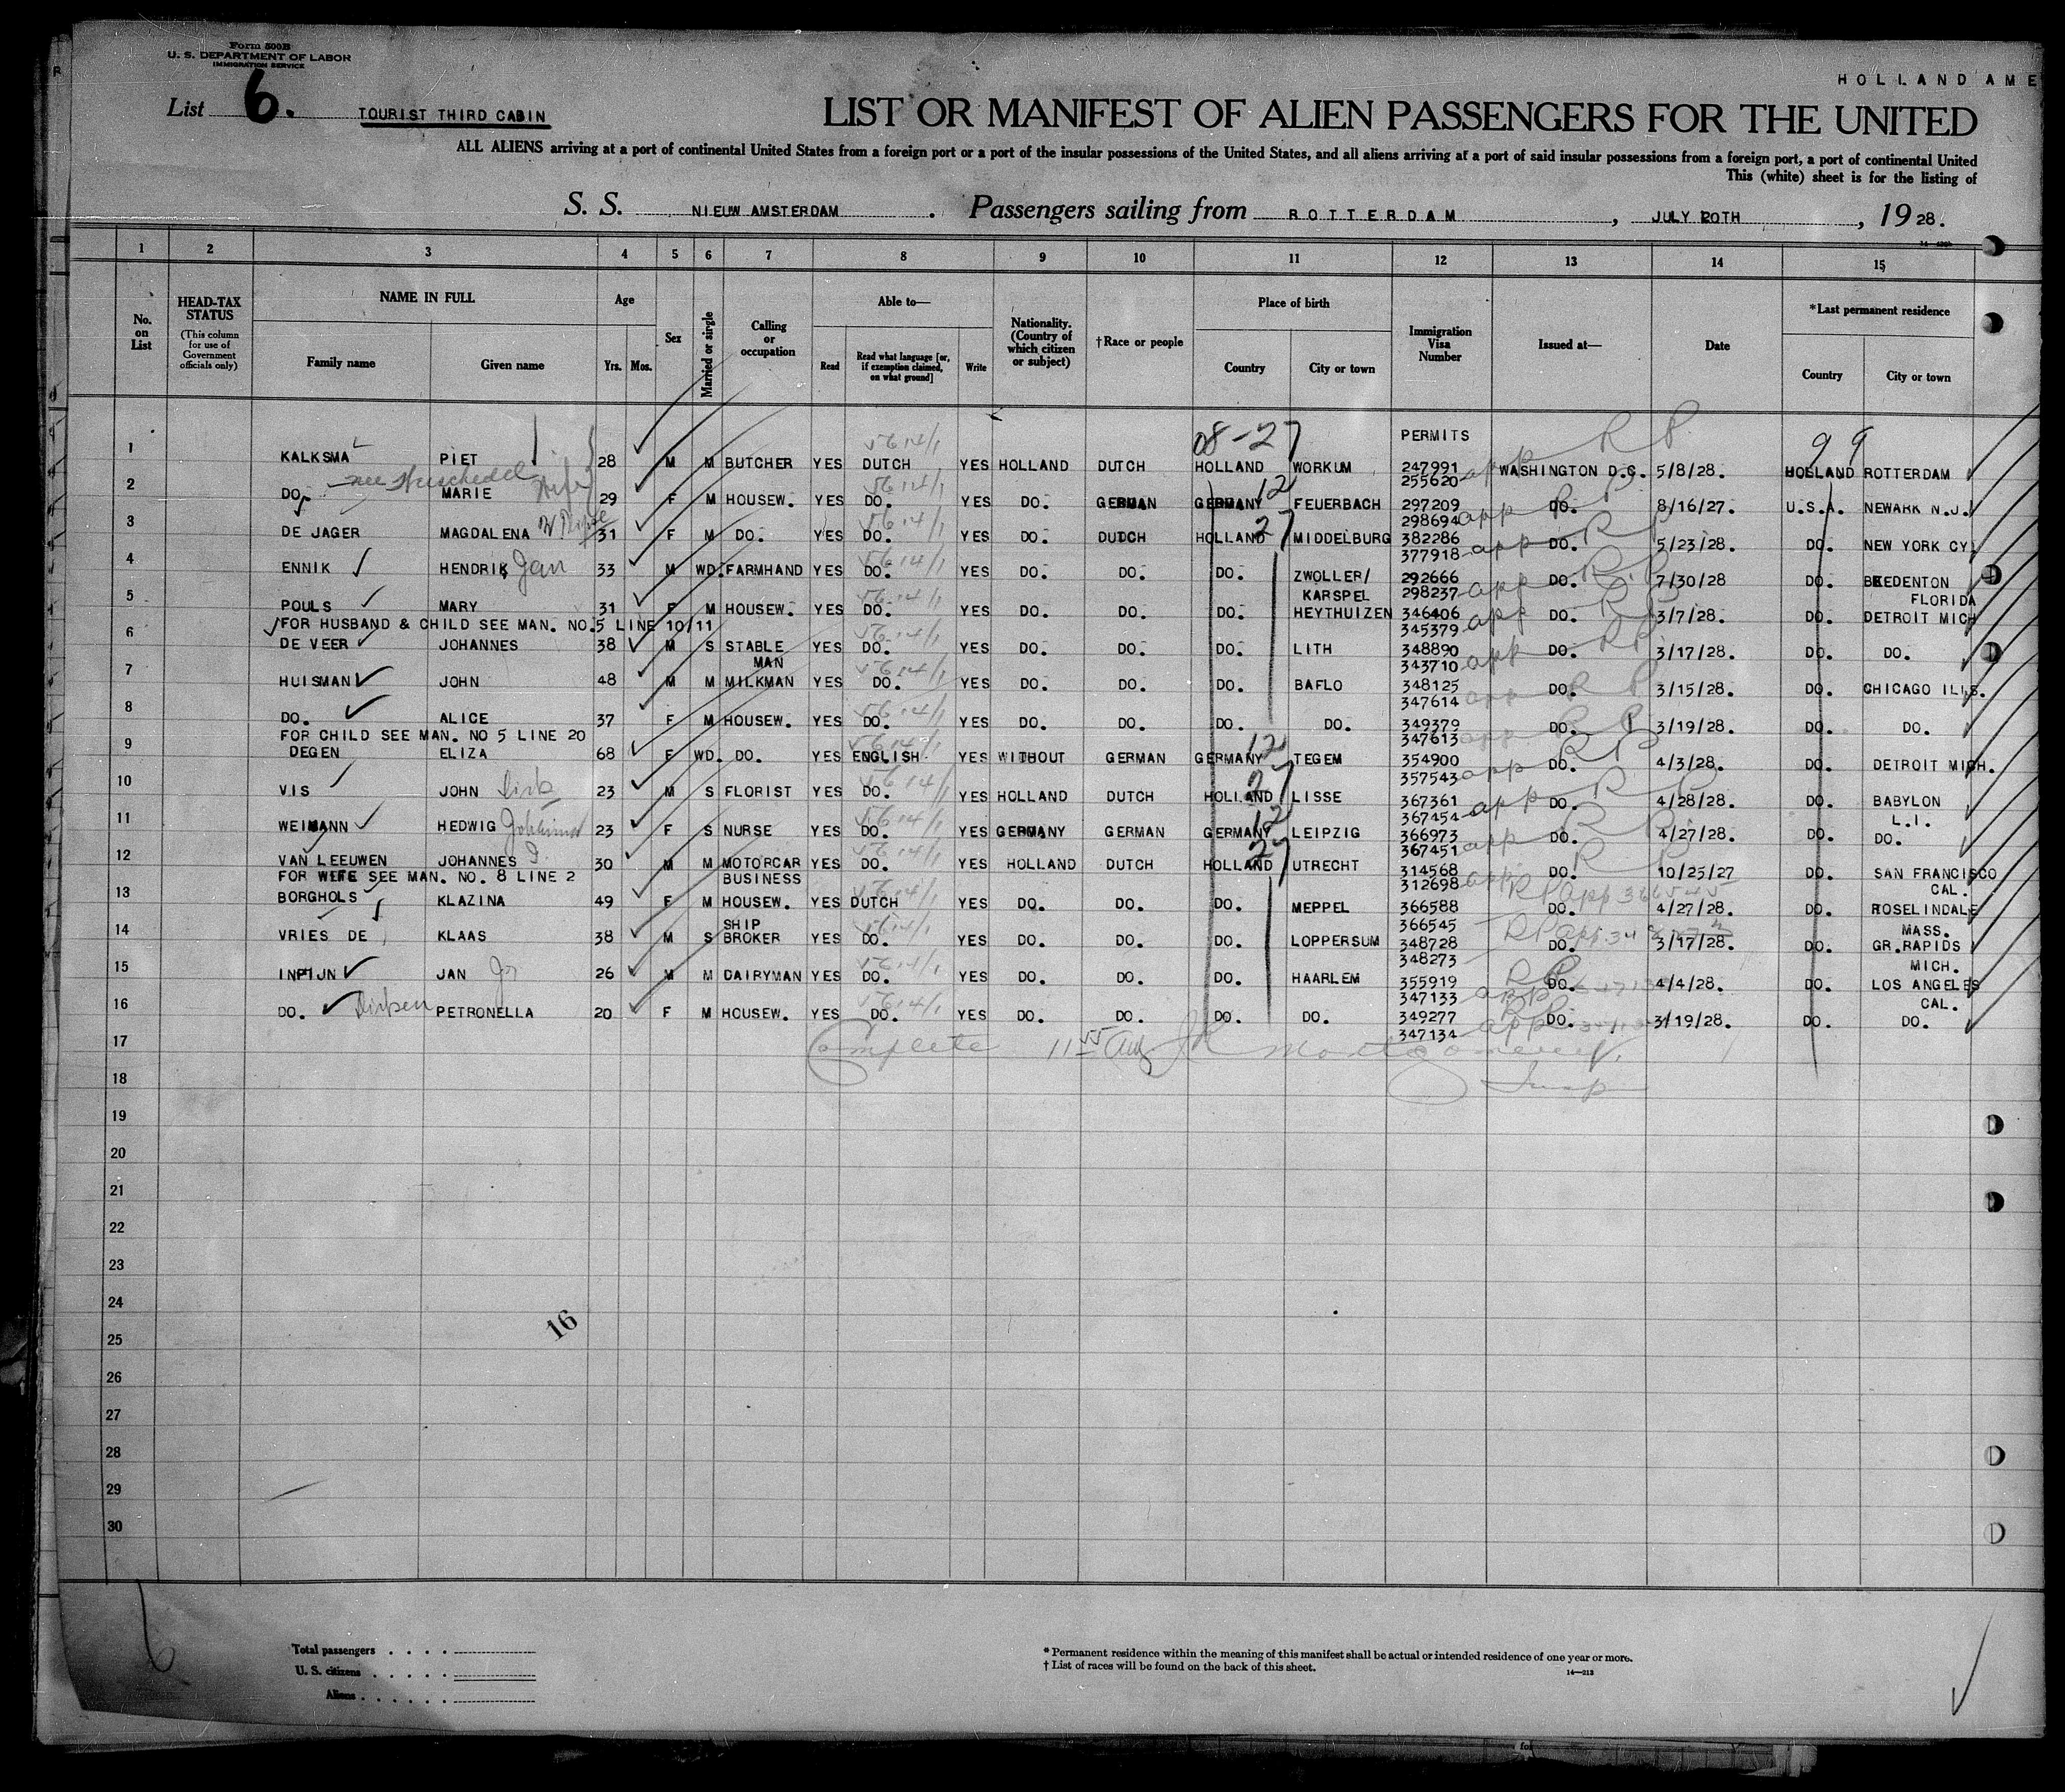 Form 500B
U. S. DEPARTMENT OF LABOR
IMMIGRATION SERVICE
HOLLAND AME
List 6. TOURIST THIRD CABIN
LIST OR MANIFEST OF ALIEN PASSENGERS FOR THE UNITED
ALL ALIENS arriving at a port of continental United States from a foreign port or a port of the insular possessions of the United States, and all aliens arriving at a port of said insular possessions from a foreign port, a port of continental United
This (white) sheet is for the listing of
S. S. NIEUW AMSTERDAM. Passengers sailing from ROTTERDAM, JULY 20TH, 1928.
1 2 3 4 5 6 7 8 9 10 11 12 13 14 15
No. on List
HEAD-TAX STATUS (This column for use of Government officials only)
NAME IN FULL Family name Given name
Age Yrs. Mos.
Sex
Married or single
Calling or occupation
Able to— Read Read what language [or, if exemption claimed, on what ground] Write
Nationality. (Country of which citizen or subject)
†Race or people
Place of birth Country City or town
Immigration Visa Number
Issued at—
Date
*Last permanent residence Country City or town
08-27 PERMITS 99
1 KALKSMA PIET 28 M M BUTCHER YES DUTCH YES HOLLAND DUTCH HOLLAND WORKUM 247991 WASHINGTON D.C. 5/8/28. HOLLAND ROTTERDAM
255620
2 DO. nee MARIE Wife 29 F M HOUSEW. YES DO. YES DO. GERMAN GERMANY 12 FEUERBACH 297209 DO. 8/16/27. U.S.A. NEWARK N.J.
298694
3 DE JAGER MAGDALENA 31 F M DO. YES DO. YES DO. DUTCH HOLLAND 27 MIDDELBURG 382286 DO. 5/23/28. DO. NEW YORK CY.
377918
4 ENNIK HENDRIK Jan 33 M WD. FARMHAND YES DO. YES DO. DO. DO. ZWOLLER/ 292666 DO. 7/30/28 DO. BREDENTON
KARSPEL 298237 FLORIDA
5 POULS MARY 31 F M HOUSEW. YES DO. YES DO. DO. DO. HEYTHUIZEN 346406 DO. 3/7/28. DO. DETROIT MICH
FOR HUSBAND & CHILD SEE MAN. NO. 5 LINE 10/11 345379
6 DE VEER JOHANNES 38 M S STABLE YES DO. YES DO. DO. DO. LITH 348890 DO. 3/17/28. DO. DO.
MAN 343710
7 HUISMAN JOHN 48 M M MILKMAN YES DO. YES DO. DO. DO. BAFLO 348125 DO. 3/15/28. DO. CHICAGO ILLS.
347614
8 DO. ALICE 37 F M HOUSEW. YES DO. YES DO. DO. DO. DO. 349379 DO. 3/19/28. DO. DO.
FOR CHILD SEE MAN. NO 5 LINE 20 347613
9 DEGEN ELIZA 68 F WD. DO. YES ENGLISH YES WITHOUT GERMAN GERMANY 12 TEGEM 354900 DO. 4/3/28. DO. DETROIT MICH.
357543
10 VIS JOHN Dirk 23 M S FLORIST YES DO. YES HOLLAND DUTCH HOLLAND 27 LISSE 367361 DO. 4/28/28. DO. BABYLON
367454 L.I.
11 WEIMANN HEDWIG 23 F S NURSE YES DO. YES GERMANY GERMAN GERMANY 12 LEIPZIG 366973 DO. 4/27/28. DO. DO.
367451
12 VAN LEEUWEN JOHANNES 30 M M MOTORCAR YES DO. YES HOLLAND DUTCH HOLLAND 27 UTRECHT 314568 DO. 10/25/27 DO. SAN FRANCISCO
FOR WIFE SEE MAN. NO. 8 LINE 2 BUSINESS 312698 CAL.
13 BORGHOLS KLAZINA 49 F M HOUSEW. YES DUTCH YES DO. DO. DO. MEPPEL 366588 DO. 4/27/28. DO. ROSELINDALE
366545 MASS.
14 VRIES DE KLAAS 38 M S SHIP BROKER YES DO. YES DO. DO. DO. LOPPERSUM 348728 DO. 3/17/28. DO. GR.RAPIDS
348273 MICH.
15 INPIJN JAN 26 M M DAIRYMAN YES DO. YES DO. DO. DO. HAARLEM 355919 DO. 4/4/28. DO. LOS ANGELES
347133 CAL.
16 DO. PETRONELLA 20 F M HOUSEW. YES DO. YES DO. DO. DO. DO. 349277 DO. 3/19/28. DO. DO.
347134
17 Complete Montgomery
18 Insp
19
20
21
22
23
24
16
25
26
27
28
29
30
Total passengers . . . .
U. S. citizens . . . . .
Aliens . . . . . .
* Permanent residence within the meaning of this manifest shall be actual or intended residence of one year or more.
† List of races will be found on the back of this sheet.
14—213